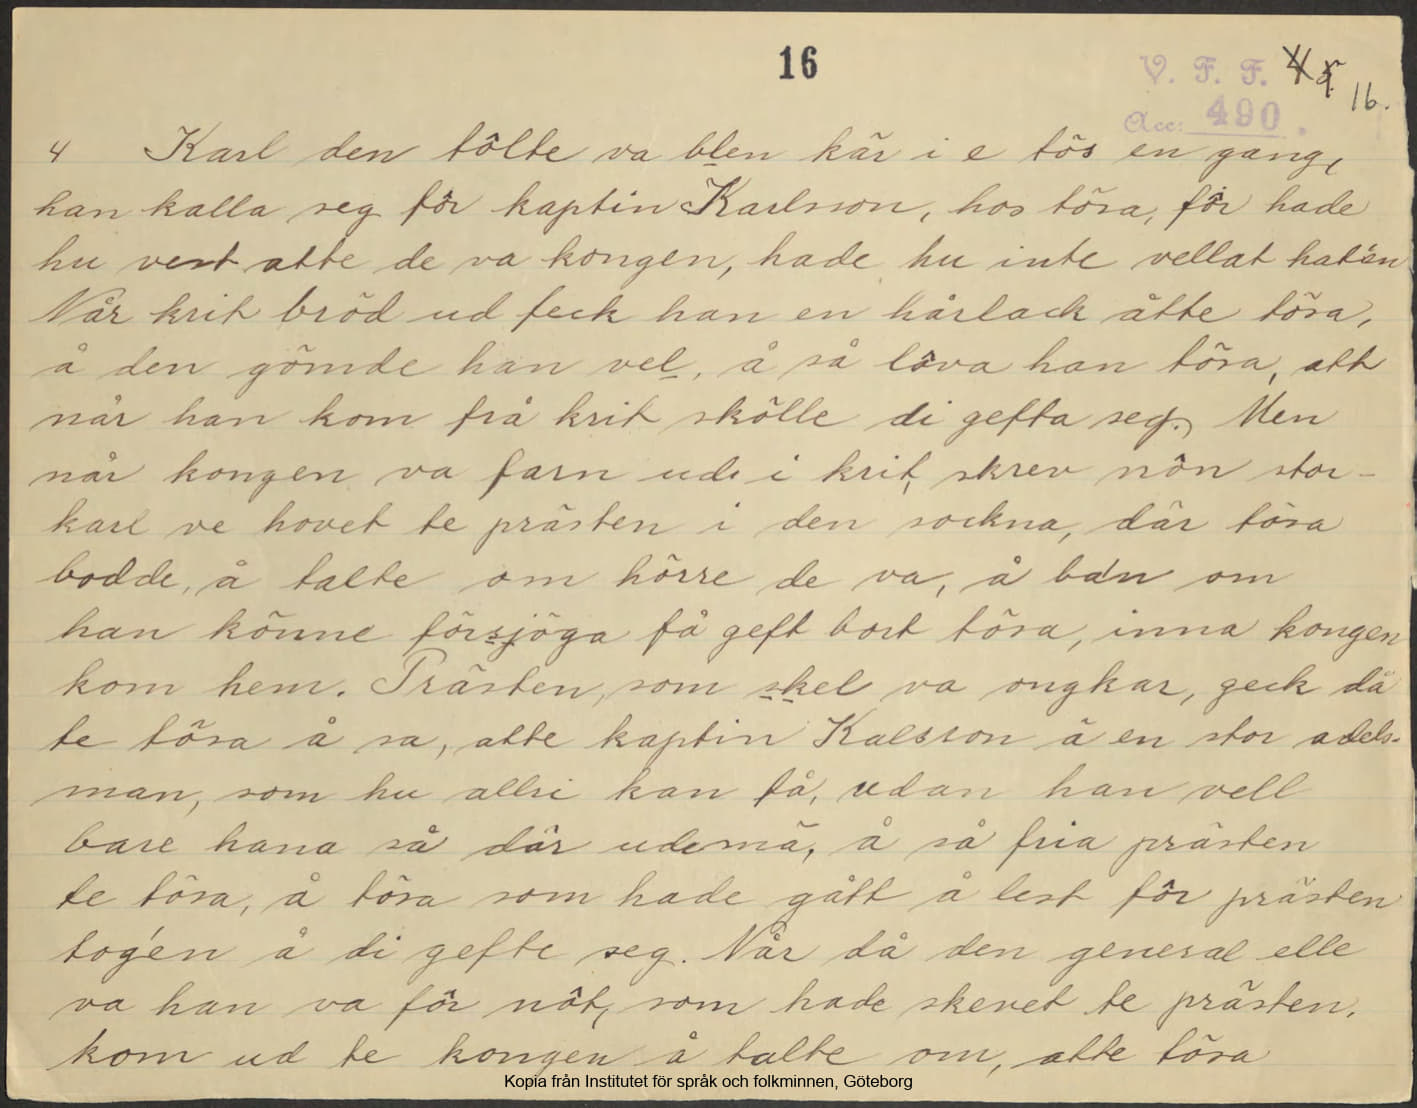 16
V. F. F. 4 5
Acc: 490. 16.
4 Karl den tôlte va blen kär i e tös en gang,
han kalla seg fôr kaptin Karlsson, hos tösa, fôr hade
hu vest atte de va kongen, hade hu inte vellat hat'än
Når krit bröd ud feck han en hårlack åtte tösa,
å den gömde han vel, å så lôva han tösa, att
når han kom frå krit skölle di gefta seg. Men
når kongen va farn ude i krit, skrev nôn stor-
karl ve hovet te prästen i den sockna, där tösa
bodde, å talte om hörre de va, å ba'n om
han könne försjöga få geft bort tösa, inna kongen
kom hem. Prästen, som skel va ongkar, geck då
te tösa å sa, atte kaptin Kalsson ä en stor adels-
man, som hu allri kan få, udan han vell
bare hana så där udemä, å så fria prästen
te tösa, å tösa som hade gått å lest fôr prästen
tog'en å di gefte seg. Når då den general elle
va han va fôr nôt, som hade skrevet te prästen,
kom ud te kongen å talte om, atte tösa
Kopia från Institutet för språk och folkminnen, Göteborg